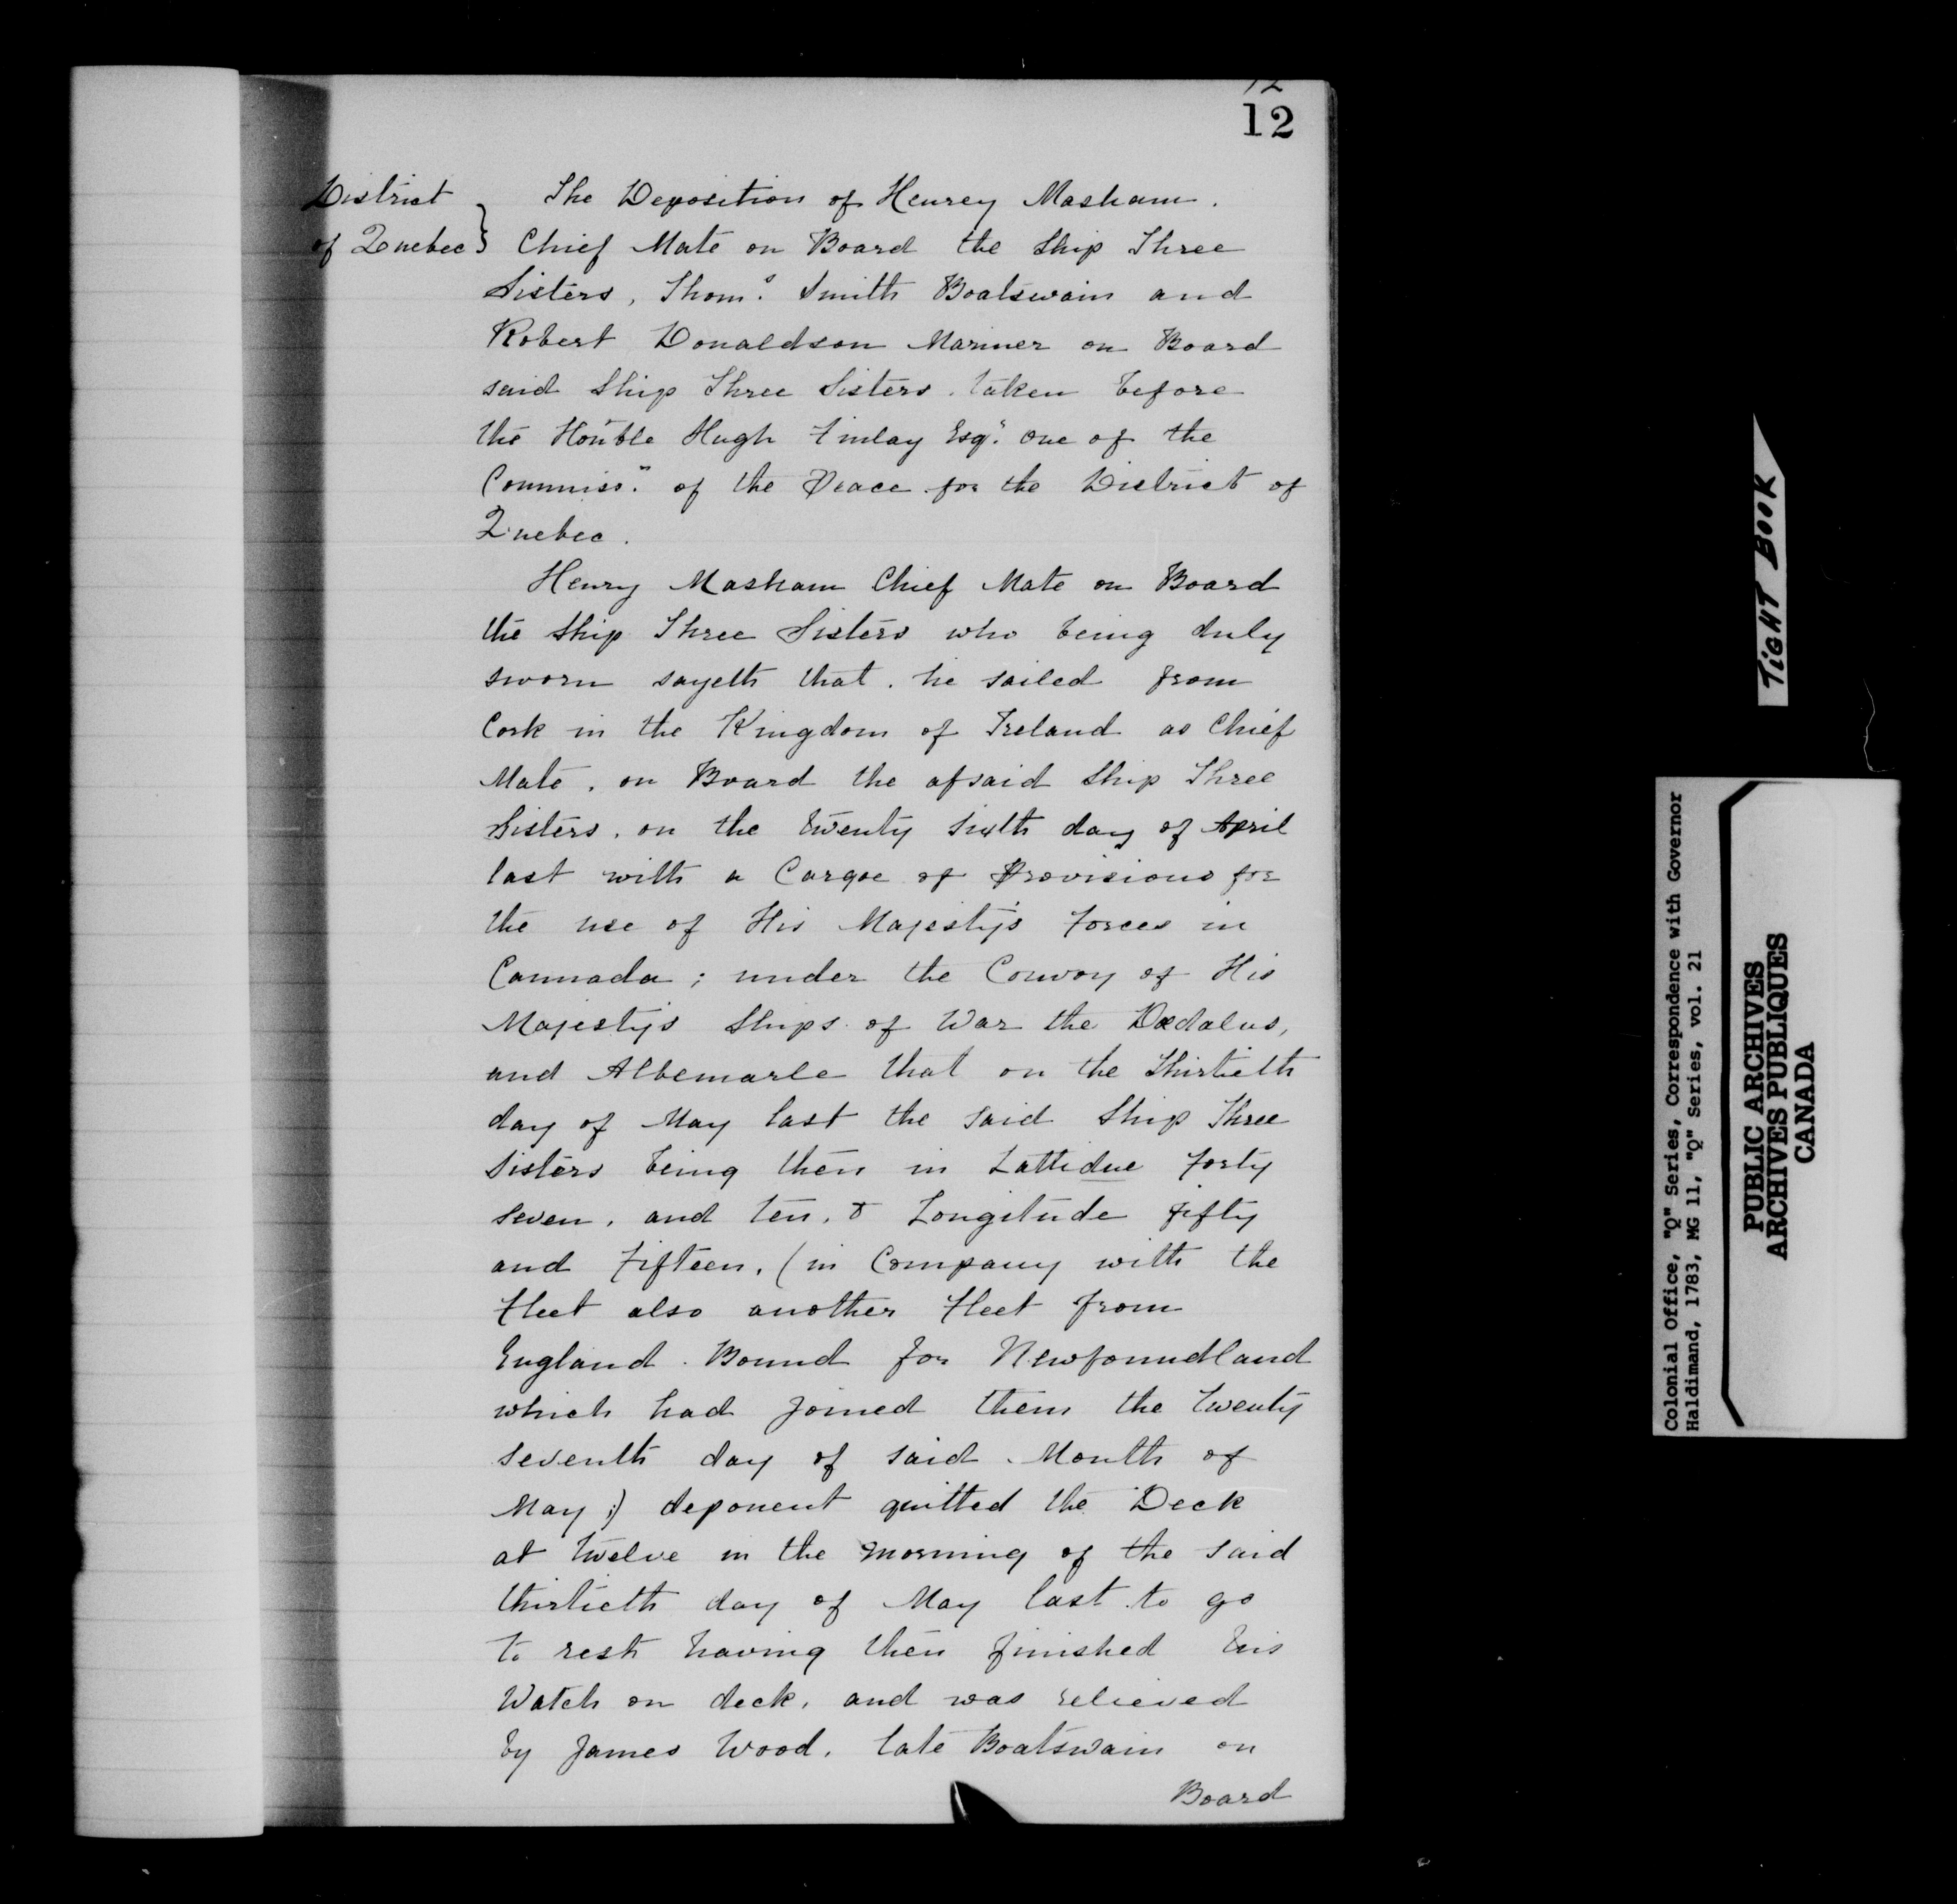 12
12
District
of Quebec }
The Deposition of Henrey Masham.
Chief Mate on Board the Ship Three
Sisters, Thomˢ. Smith Boatswain and
Robert Donaldson Mariner on Board
said Ship Three Sisters. taken before
the Honble Hugh Finlay Esqʳ. one of the
Commissʳˢ. of the Peace for the District of
Quebec.
Henry Masham Chief Mate on Board
the Ship Three Sisters who being duly
sworn sayeth that. he sailed from
Cork in the Kingdom of Ireland as Chief
Mate, on Board the afsaid Ship Three
Sisters, on the twenty sixth day of April
last with a Cargoe of Provisions for
the use of His Majesty's forces in
Cannada; under the Convoy of His
Majesty's Ships of War the Dædalus,
and Albemarle that on the Thirtieth
day of May last the said Ship Three
Sisters being then in Lattidue forty
seven, and ten, & Longitude fifty
and fifteen, (in Company with the
fleet also another fleet from
England. Bound for Newfoundland
which had joined them the twenty
seventh day of said Month of
May;) deponent quitted the Deck
at twelve in the morning of the said
thirtieth day of May last to go
to rest having then finished his
Watch on deck, and was relieved
by James Wood, late Boatswain on
Board
TIGHT BOOK
Colonial Office, "Q" Series, Correspondence with Governor
Haldimand, 1783, MG 11, "Q" Series, vol. 21
PUBLIC ARCHIVES
ARCHIVES PUBLIQUES
CANADA